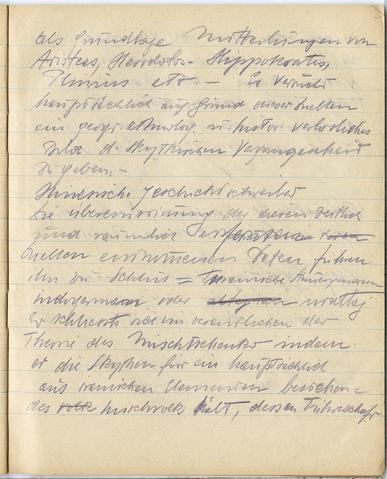 als Grundlage Mitteilungen von
Aristeas, Herodotos - Hippokrates,
Plinius etz - Er versucht
hauptsächlich auf Grund dieser Quellen
ein geogr. ethnolog. u. histor. verlässliches
Bild d. skythischen Vergangenheit
zu geben -
Chinesische Geschichtschreiber
Die Übereinstimmung der diesen zeitlich
und räumlich
Quellen entnommenen Daten führen
ihn zu Schluss = Iranische
oder
Er schliesst sich im wesentlichen der
Theorie des Mischtschenko indem
er die Skythen für ein hauptsächlich
aus iranischen Elementen bestehen-
des Mischvolk hält, dessen